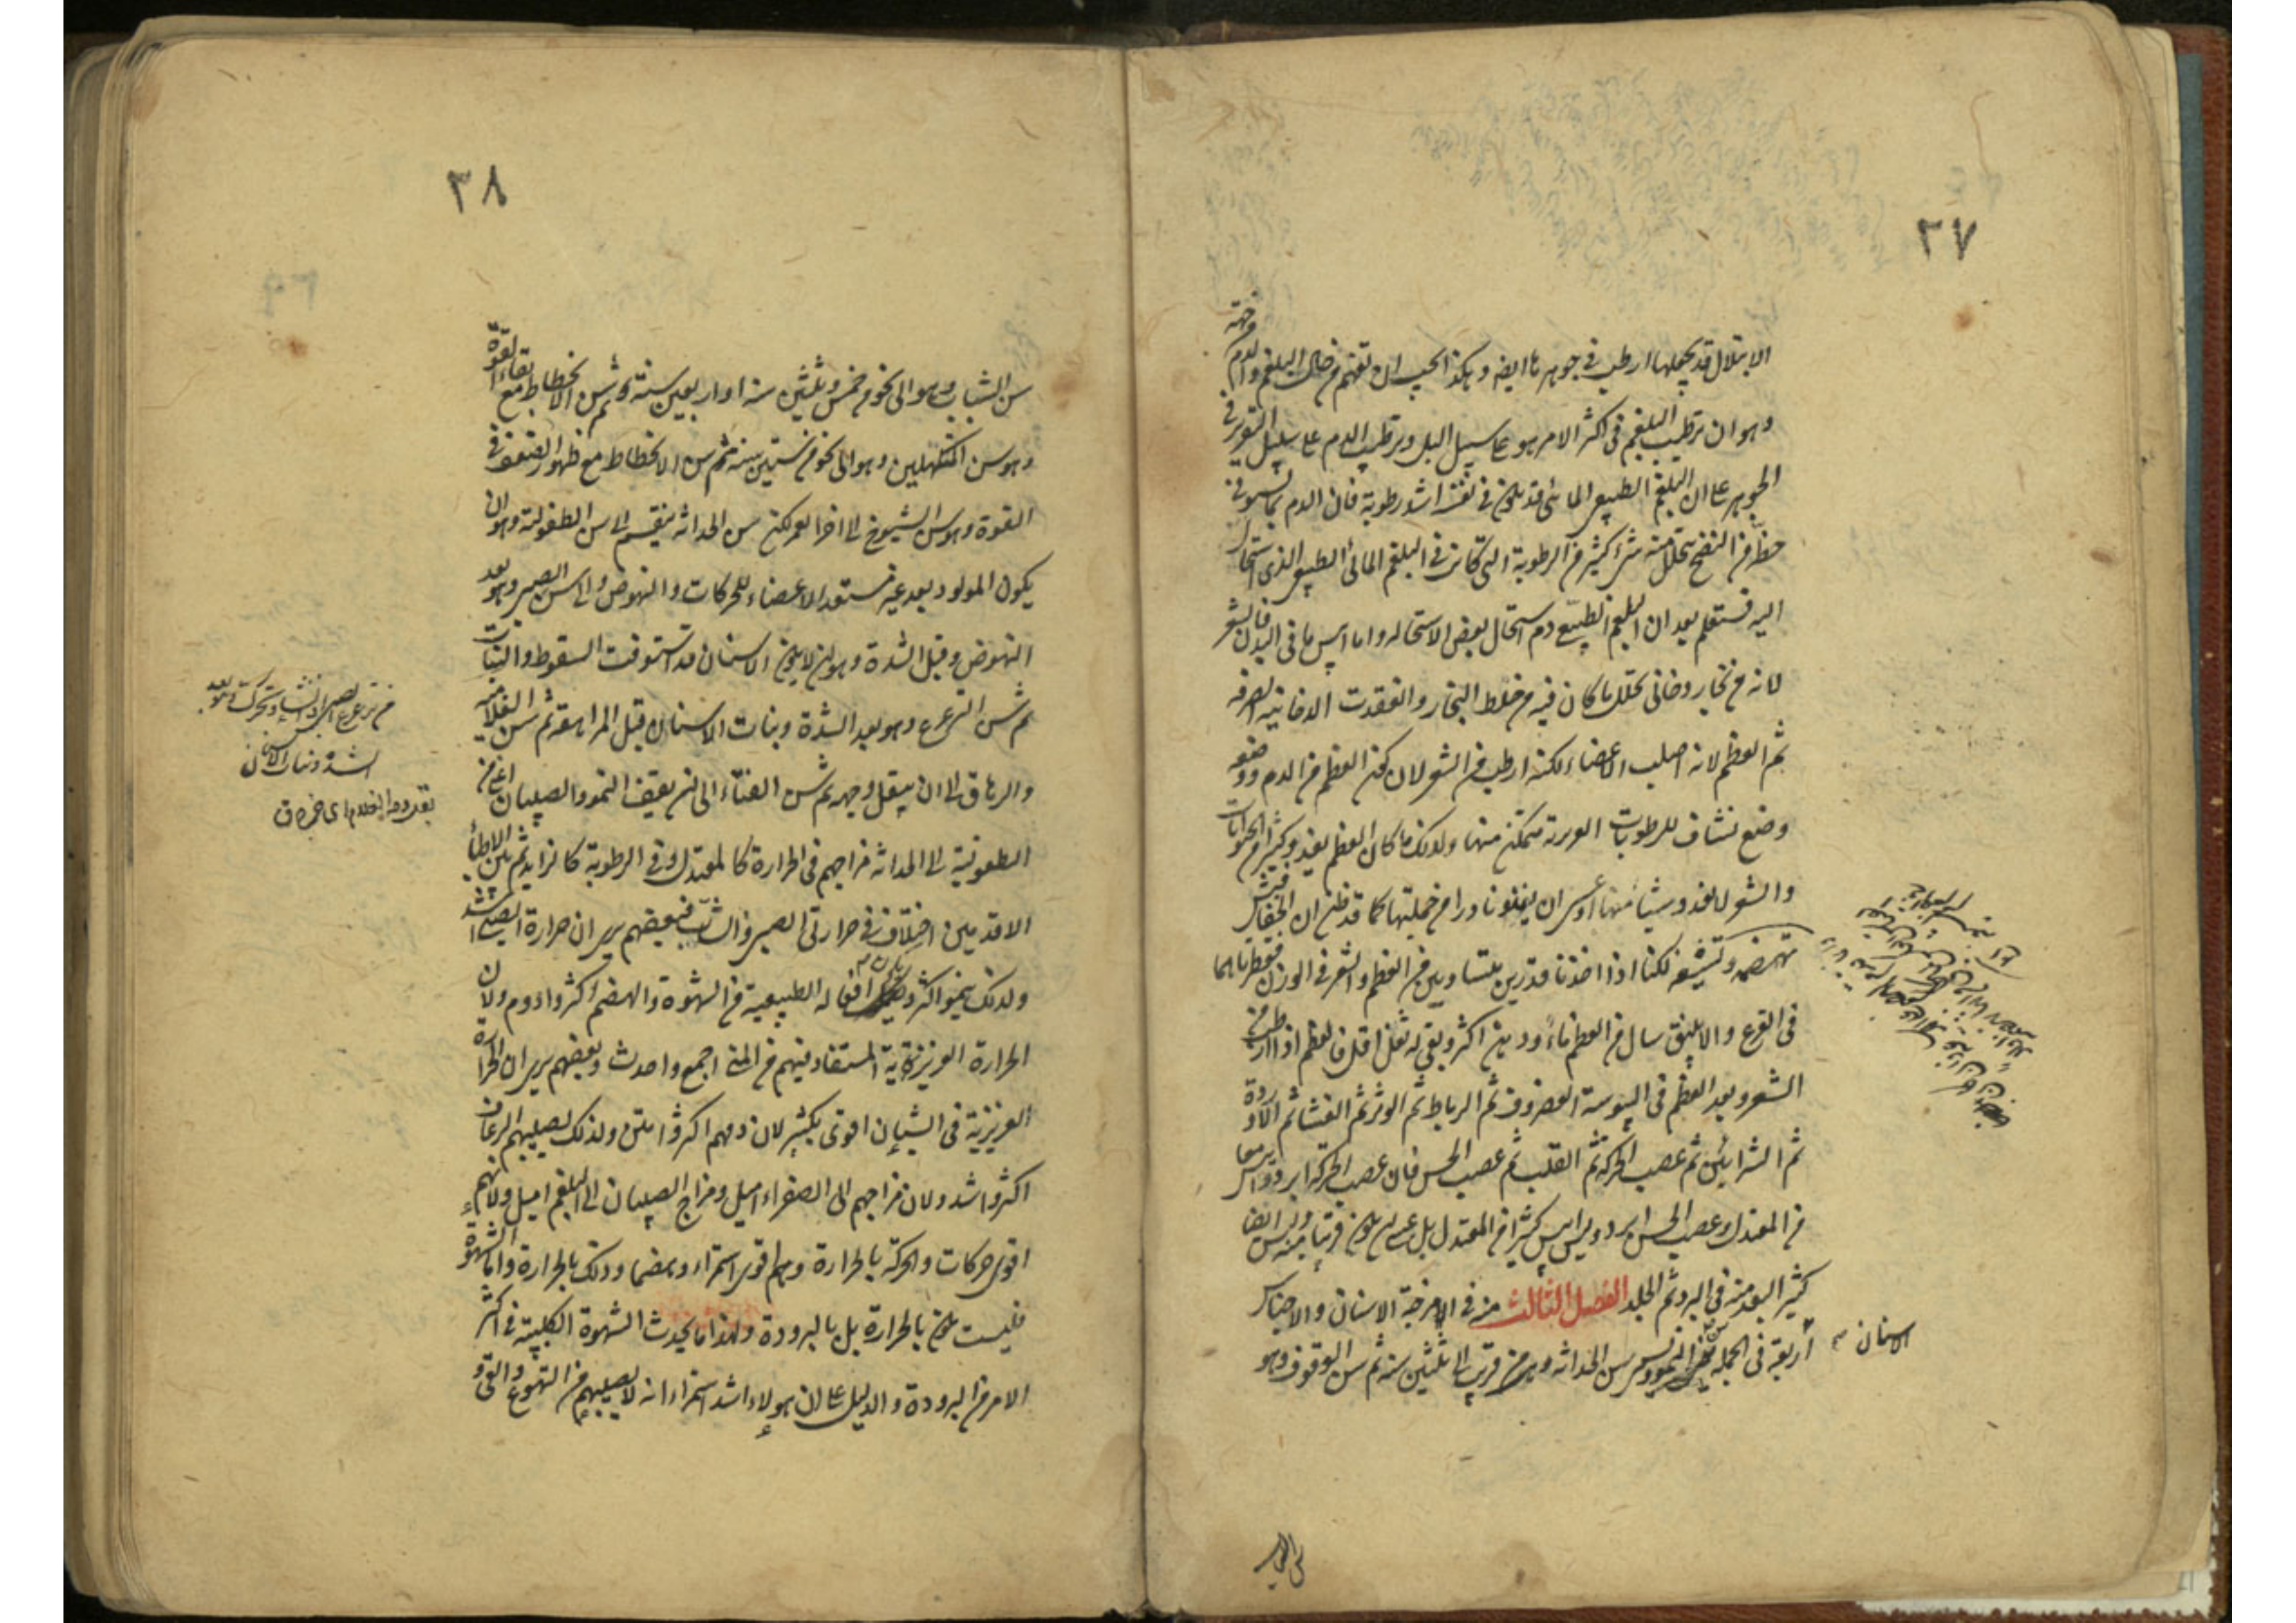 ٣٧
الابتلال قد يجعلها ارطب في جوهرها ايضا وهكذا يجب ان تفهم من حال البلغم والدم من جهة
وهو ان ترطيب البلغم في اكثر الامر هو على سبيل البل وترطيب الدم على سبيل التقرير في
الجوهر على ان البلغم الطبيعي المائي قد يكون في نفسه اشد رطوبة فان الدم بما يستوفي
حظه من النضج يتحلل منه شئ كثير من الرطوبة التي كانت في البلغم المائي الطبيعي الذي استحال
اليه فستعلم بعد ان البلغم الطبيعي دم استحال بعض الاستحالة واما ايبس ما في البدن فالشعر
لانه من بخار دخاني تحلل ما كان فيه من خلط البخار وانعقدت الدخانية الصرفة
ثم العظم لانه اصلب الاعضاء لكنه ارطب من الشعر لان كون العظم من الدم ووضعه
وضع نشاف للرطوبات الغريزية متمكن منها ولذلك ما كان العظم يغذو كثيرا من الحيوانات
والشعر لا يغذو شيئا منها او عسى ان يغذو نادرا من جملتها كما قد ظن ان الخفافيش
تهضمه وتسيغه لكنا اذا اخذنا قدرين متساويين من العظم والشعر في الوزن فقطرناهما
في القرع والانبيق سال من العظم ماء ودهن اكثر وبقي له ثفل اقل فالعظم اذا ارطب من
الشعر وبعد العظم في اليبوسة الغضروف ثم الرباط ثم الوتر ثم الغشا ثم الاوردة
ثم الشرايين ثم عصب الحركة ثم القلب ثم عصب الحس فان عصب الحركة ابرد وايبس معا
من المعتدل وعصب الحس ابرد وليس ايبس كثيرا من المعتدل بل عسى ان يكون قريبا منه وليس ايضا
كثير البعد منه في البرد ثم الجلد الفصل الثالث منه في امزجة الاسنان والاجناس
الاسنان
اربعة في الجملة سن النمو ويسمى سن الحداثة وهو من قريب الى ثلثين سنة ثم سن الوقوف وهو
٣٨
سن الشباب وهو الى نحو من خمس وثلثين سنة او اربعين سنة وثم سن الانحطاط مع بقاء القوة
وهو سن المكتهلين وهو الى نحو من ستين سنة ثم سن الانحطاط مع ظهور الضعف في
القوة وهو سن الشيوخ الى اخر العمر لكن سن الحداثة ينقسم الى سن الطفولة وهو ان
يكون المولود بعد غير مستعد الاعضاء للحركات والنهوض والى سن الصبى وهو بعد
النهوض وقبل الشدة وهو ان لا يكون الاسنان قد استوفت السقوط والنبات
ثم سن الترعرع وهو بعد الشدة ونبات الاسنان قبل المراهقة ثم سن الغلامية
والرهاق الى ان يبقل وجهه ثم سن الفتاء الى ان يقف النمو والصبيان اعنى من
الطفولية الى الحداثة مزاجهم في الحرارة كالمعتدل وفي الرطوبة كالزايد ثم بين الاطباء
الاقدمين اختلاف في حرارتي الصبي والشاب فبعضهم يرى ان حرارة الصبي اشد
ولذلك ينمو اكثر ويكون افعاله الطبيعية من الشهوة والهضم اكثر وادوم ولان
الحرارة الغريزية المستفادة فيهم من المنى اجمع واحدث وبعضهم يرى ان الحرارة
الغريزية في الشبان اقوى بكثير لان دمهم اكثر وامتن ولذلك يصيبهم الرعاف
اكثر واشد ولان مزاجهم الى الصفراء اميل ومزاج الصبيان الى البلغم اميل ولانهم
اقوى حركات والحركة بالحرارة وهم اقوى استمراء وهضما وذلك بالحرارة واما الشهوة
فليست تكون بالحرارة بل بالبرودة ولهذا ما يحدث الشهوة الكلبية في اكثر
الامر من البرودة والدليل على ان هولاء اشد استمراء انه لا يصيبهم من التهوع والقئ و